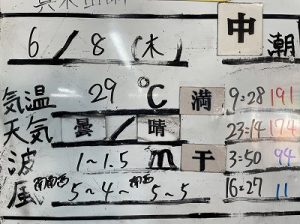 6/8(木) 中 朝
気温 29℃ 満 9:28 191
天気 曇/晴 23:14 174
波 1~1.5m 干 3:50 94
風 南南西 5~4~ 南西 5~5 16:27 11